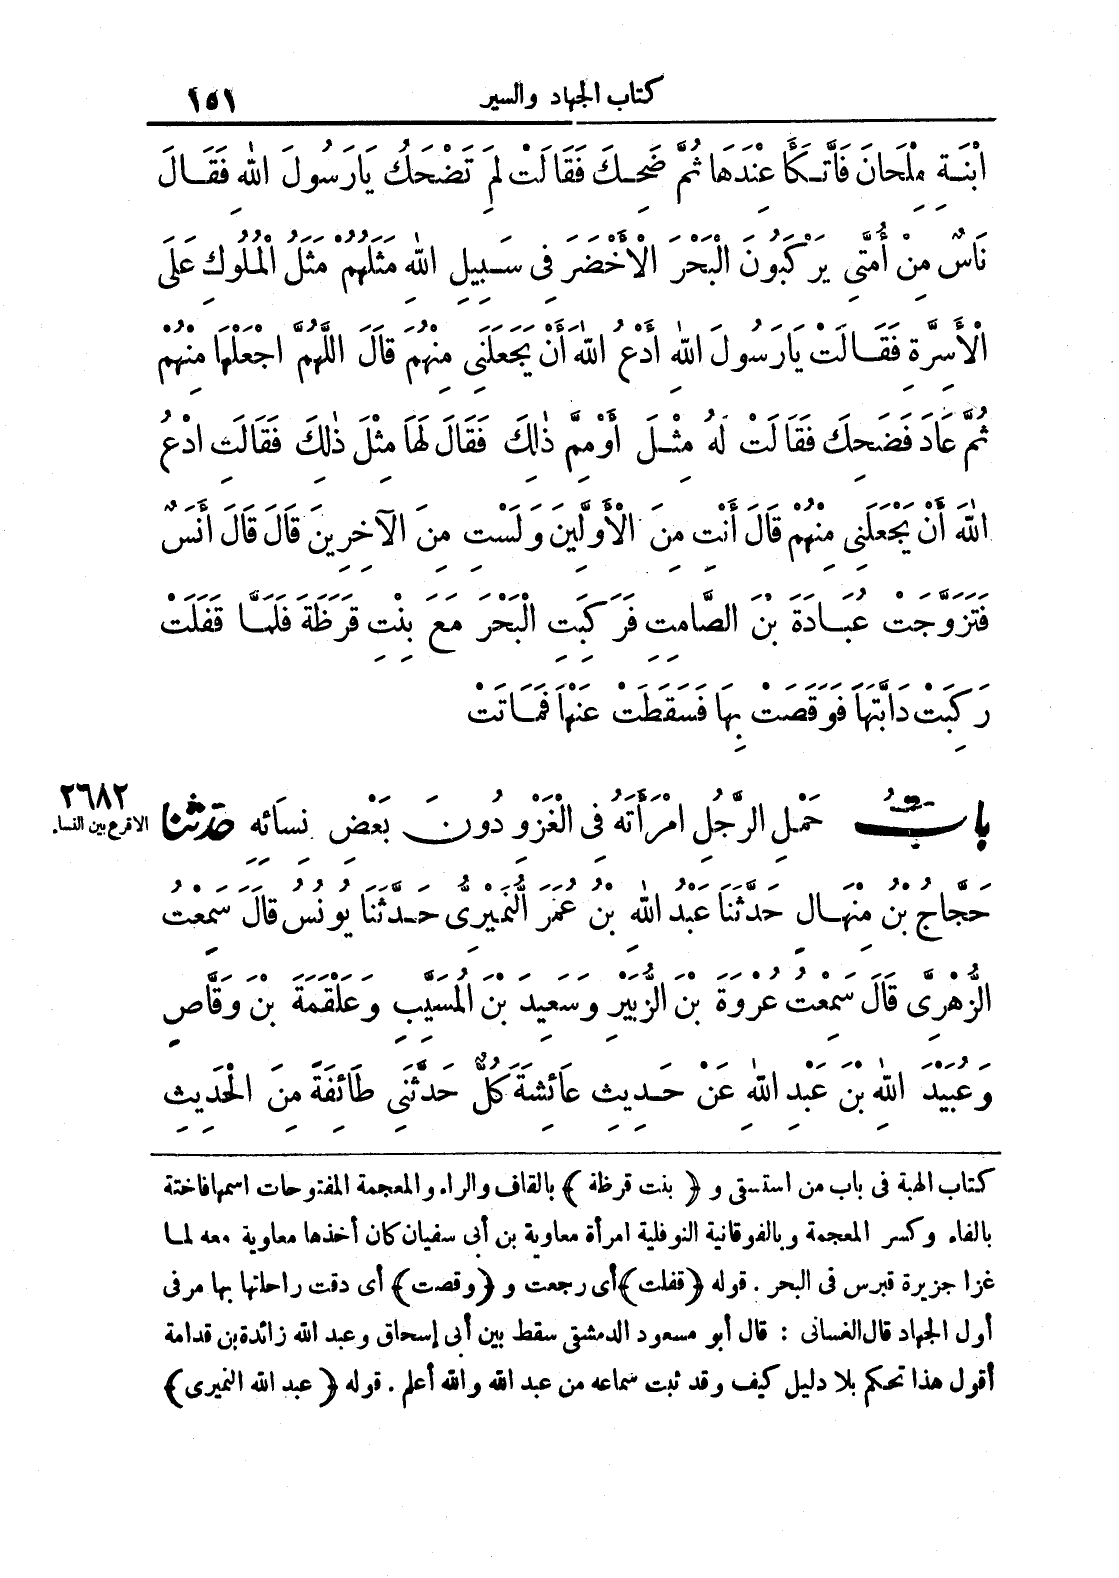 كتاب الجهاد والسير
١٥١
ابْنَةِ مِلْحَانَ فَاتَّكَأَ عِنْدَهَا ثُمَّ ضَحِكَ فَقَالَتْ لِمَ تَضْحَكُ يَارَسُولَ اللّٰهِ فَقَالَ
نَاسٌ مِنْ أُمَّتِي يَرْكَبُونَ الْبَحْرَ الْأَخْضَرَ فِي سَبِيلِ اللّٰهِ مَثَلُهُمْ مَثَلُ الْمُلُوكِ عَلَى
الْأَسِرَّةِ فَقَالَتْ يَارَسُولَ اللّٰهِ أَدْعُ اللّٰهَ أَنْ يَجْعَلَنِي مِنْهُمْ قَالَ اللَّهُمَّ اجْعَلْهَا مِنْهُمْ
ثُمَّ عَادَ فَضَحِكَ فَقَالَتْ لَهُ مِثْلَ أَوْ مِمَّ ذٰلِكَ فَقَالَ لَهَا مِثْلَ ذٰلِكَ فَقَالَتِ ادْعُ
اللّٰهَ أَنْ يَجْعَلَنِي مِنْهُمْ قَالَ أَنْتِ مِنَ الْأَوَّلِينَ وَلَسْتِ مِنَ الْآخِرِينَ قَالَ قَالَ أَنَسٌ
فَتَزَوَّجَتْ عُبَادَةَ بْنَ الصَّامِتِ فَرَكِبَتِ الْبَحْرَ مَعَ بِنْتِ قَرَظَةَ فَلَمَّا قَفَلَتْ
رَكِبَتْ دَابَّتَهَا فَوَقَصَتْ بِهَا فَسَقَطَتْ عَنْهَا فَمَاتَتْ
بَابُ حَمْلِ الرَّجُلِ امْرَأَتَهُ فِي الْغَزْوِ دُونَ بَعْضِ نِسَائِهِ حَدَّثَنَا
٢٦٨٢
الاقرع بين النساء
حَجَّاجُ بْنُ مِنْهَالٍ حَدَّثَنَا عَبْدُ اللّٰهِ بْنُ عُمَرَ النُّمَيْرِيُّ حَدَّثَنَا يُونُسُ قَالَ سَمِعْتُ
الزُّهْرِيَّ قَالَ سَمِعْتُ عُرْوَةَ بْنَ الزُّبَيْرِ وَسَعِيدَ بْنَ الْمُسَيَّبِ وَعَلْقَمَةَ بْنَ وَقَّاصٍ
وَعُبَيْدَ اللّٰهِ بْنَ عَبْدِ اللّٰهِ عَنْ حَدِيثِ عَائِشَةَ كُلٌّ حَدَّثَنِي طَائِفَةً مِنَ الْحَدِيثِ
كتاب الهبة فى باب من استسقى و ﴿ بنت قرظة ﴾ بالقاف والراء والمعجمة المفتوحات اسمها فاختة
بالفاء وكسر المعجمة وبالفوقانية النوفلية امرأة معاوية بن أبى سفيان كان أخذها معاوية معه لما
غزا جزيرة قبرس فى البحر . قوله ﴿قفلت﴾ أى رجعت و ﴿وقصت﴾ أى دقت راحلتها بها مر فى
أول الجهاد قال الغسانى : قال أبو مسعود الدمشقى سقط بين أبى إسحاق وعبد الله زائدة بن قدامة
أقول هذا تحكم بلا دليل كيف وقد ثبت سماعه من عبد الله والله أعلم . قوله ﴿ عبد الله النميرى ﴾